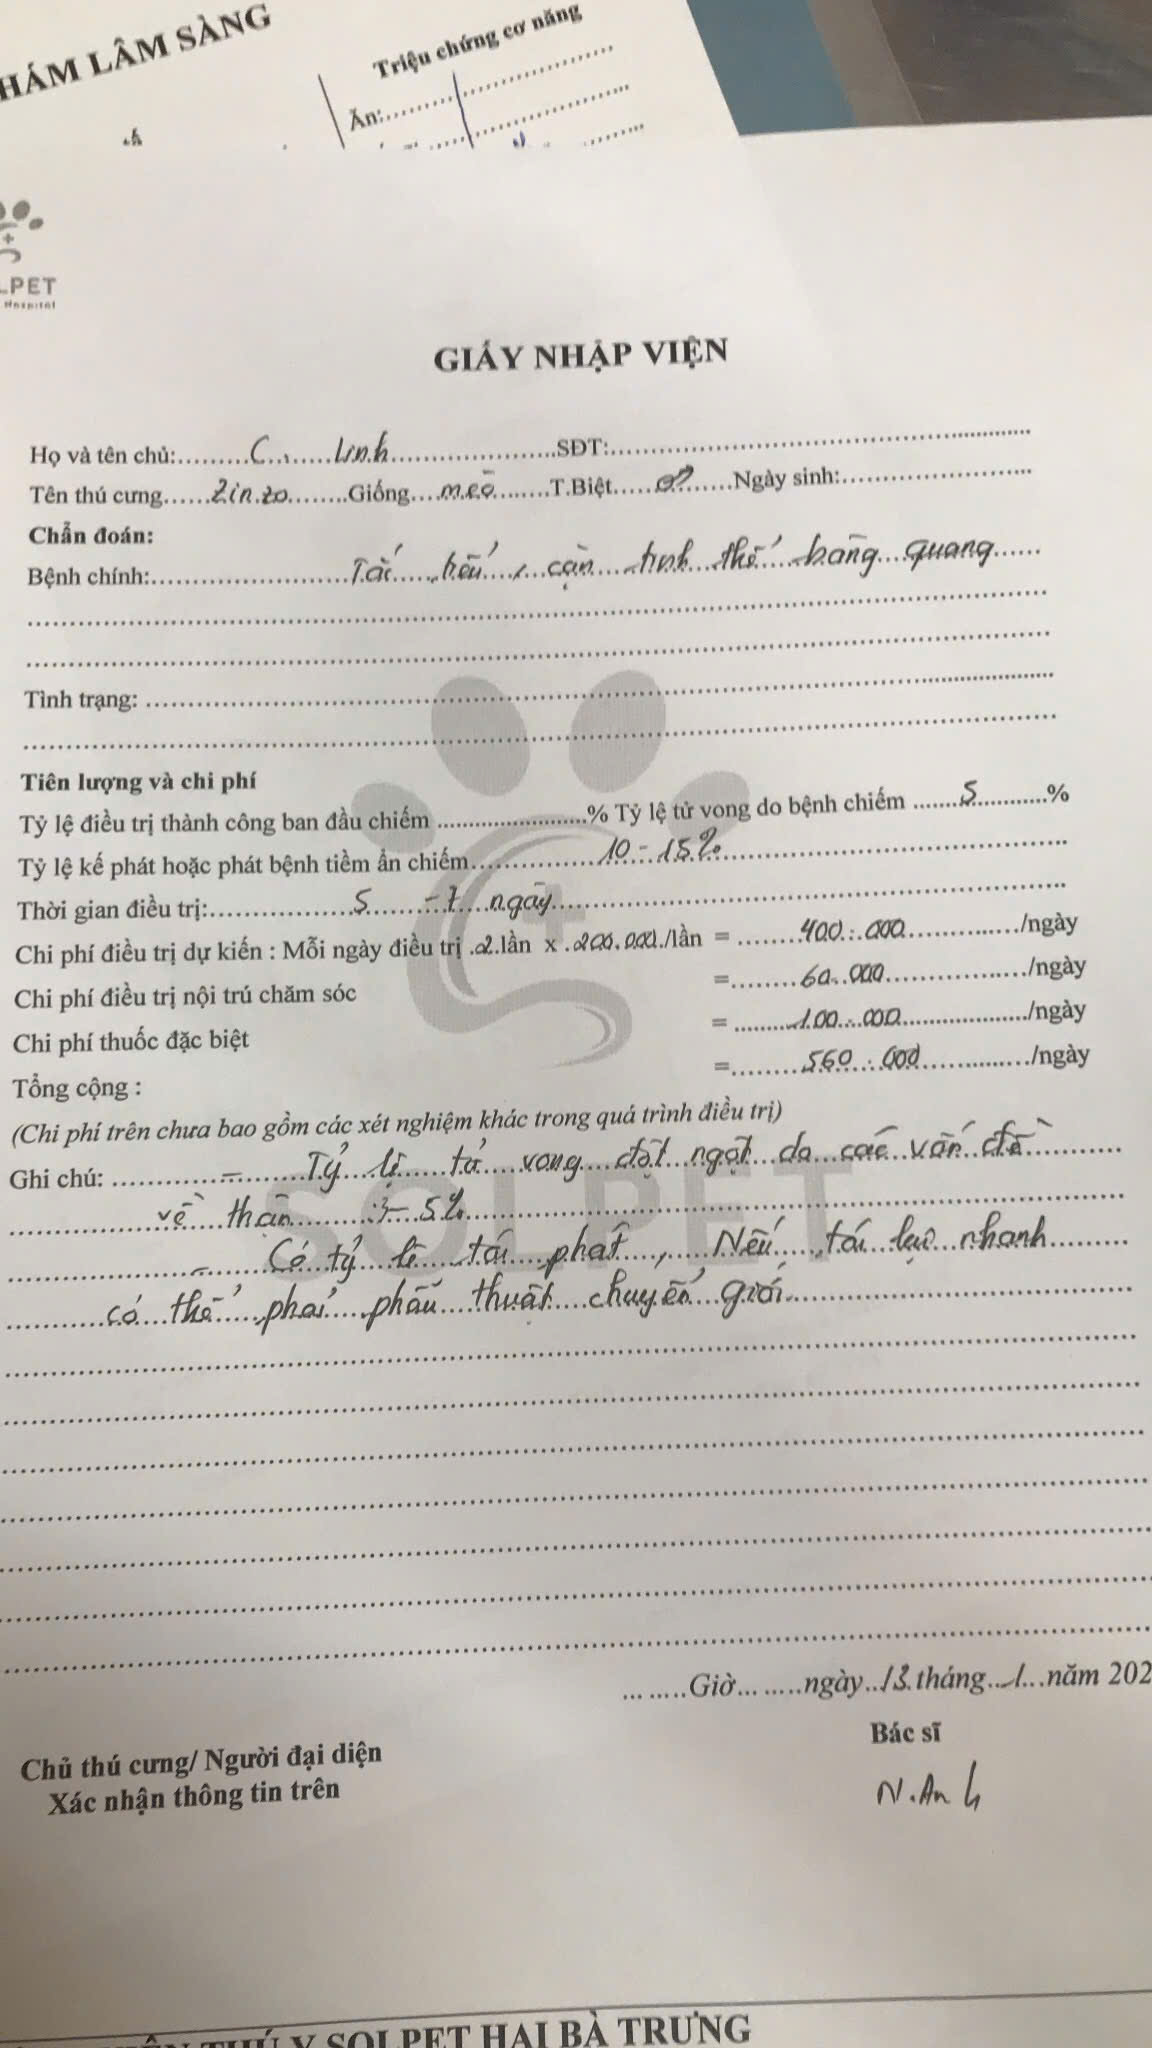 HÁM LÂM SÀNG
Triệu chứng cơ năng
Ăn:
LPET
Hospital
GIẤY NHẬP VIỆN
Họ và tên chủ: C. Linh SĐT:
Tên thú cưng Zin zo Giống mèo T.Biệt ♂ Ngày sinh:
Chẩn đoán:
Bệnh chính: Tắc tiểu, cặn tinh thể bàng quang
Tình trạng:
Tiên lượng và chi phí
Tỷ lệ điều trị thành công ban đầu chiếm % Tỷ lệ tử vong do bệnh chiếm 5 %
Tỷ lệ kế phát hoặc phát bệnh tiềm ẩn chiếm 10 - 15%
Thời gian điều trị: 5 - 7 ngày
Chi phí điều trị dự kiến : Mỗi ngày điều trị 2 lần x 200.000/lần = 400.000 /ngày
Chi phí điều trị nội trú chăm sóc = 60.000 /ngày
Chi phí thuốc đặc biệt = 100.000 /ngày
Tổng cộng : = 560.000 /ngày
(Chi phí trên chưa bao gồm các xét nghiệm khác trong quá trình điều trị)
Ghi chú: - Tỷ lệ tử vong đột ngột do các vấn đề
về thận 3-5%
- Có tỷ lệ tái phát, Nếu tái lại nhanh
có thể phải phẫu thuật chuyển giới
SOLPET
Giờ ngày 13 tháng 1 năm 202
Chủ thú cưng/ Người đại diện
Xác nhận thông tin trên
Bác sĩ
N.Anh
THÚ Y SOLPET HAI BÀ TRƯNG